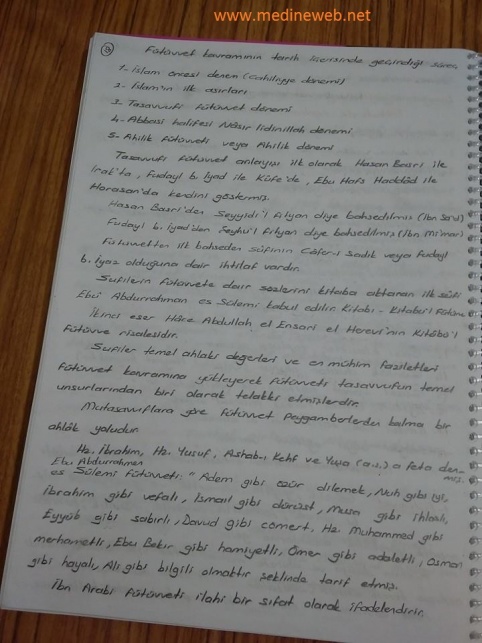 www.medineweb.net
③ Fütüvvet kavramının tarih içerisinde geçirdiği süreç
1- İslam öncesi dönem (Cahiliyye dönemi)
2- İslam'ın ilk asırları
3- Tasavvufi fütüvvet dönemi
4- Abbasi halifesi Nâsır lidinillah dönemi
5- Ahilik fütüvveti veya Ahilik dönemi
Tasavvufi fütüvvet anlayışı ilk olarak Hasan Basri ile
Irak'ta, Fudayl b. Iyad ile Kûfe'de, Ebu Hafs Haddâd ile
Horasan'da kendini göstermiş.
Hasan Basri'den Seyyidü'l fityan diye bahsedilmiş (İbn Sa'd)
Fudayl b. Iyad'dan Şeyhü'l fityan diye bahsedilmiş (İbn Mi'mar)
Fütüvvetten ilk bahseden sûfinin Câfer-i Sadık veya Fudayl
b. Iyaz olduğuna dair ihtilaf vardır.
Sufilerin fütüvvete dair sözlerini kitaba aktaran ilk sûfi
Ebû Abdurrahman es Sülemi kabul edilir. Kitabı - Kitabü'l Fütüvve
İkinci eser Hâre Abdullah el Ensari el Herevi'nin Kitâbü'l
fütüvve risalesidir.
Sufiler temel ahlaki değerleri ve en mühim faziletleri
fütüvvet kavramına yükleyerek fütüvveti tasavvufun temel
unsurlarından biri olarak telakki etmişlerdir.
Mutasavvıflara göre fütüvvet peygamberlerden kalma bir
ahlâk yoludur.
Hz. İbrahim, Hz. Yusuf, Ashab-ı Kehf ve Yuşa (a.s.) a feta den
miş.
Ebu Abdurrahman
es Sülemi fütüvveti: "Adem gibi özür dilemek, Nuh gibi iyi,
İbrahim gibi vefalı, İsmail gibi dürüst, Musa gibi ihlaslı,
Eyyüb gibi sabırlı, Davud gibi cömert, Hz Muhammed gibi
merhametli, Ebu Bekir gibi hamiyetli, Ömer gibi adaletli, Osman
gibi hayalı, Ali gibi bilgili olmaktır şeklinde tarif etmiş.
İbn Arabi fütüvveti ilahi bir sıfat olarak ifadelendirir.